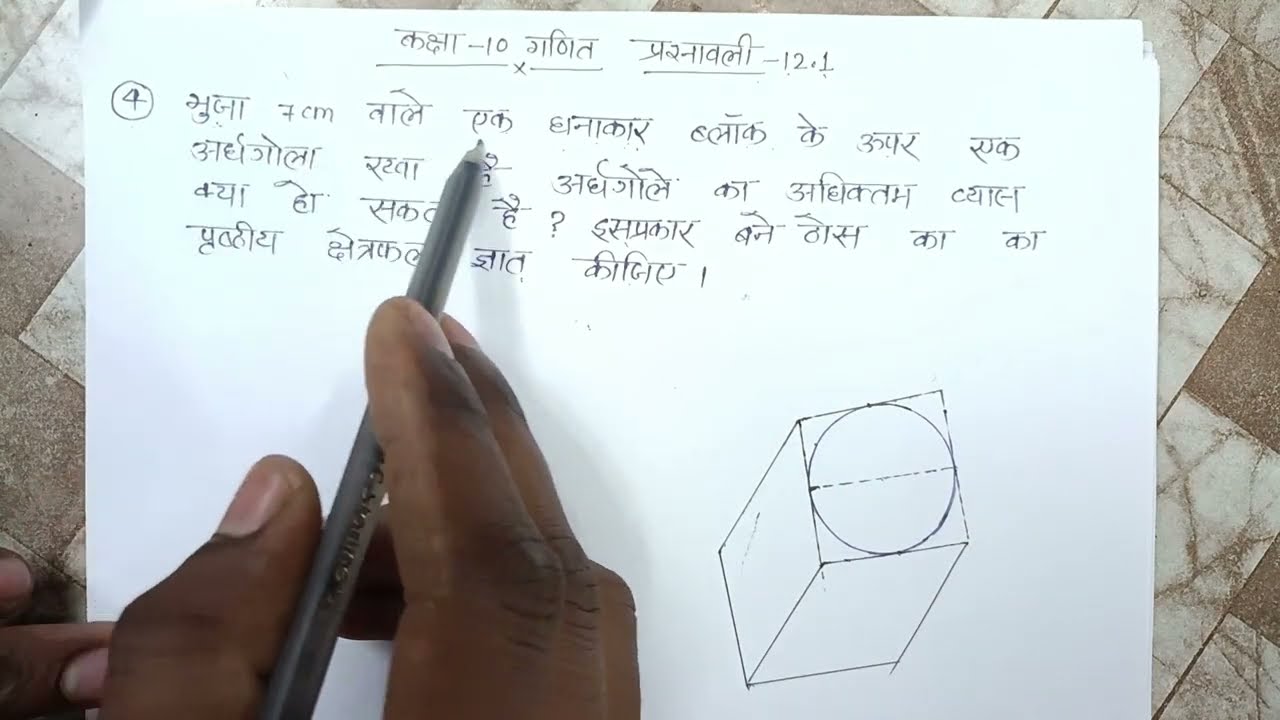 कक्षा -10 गणित प्रश्नावली -12.1
④ भुजा 7cm वाले एक घनाकार ब्लॉक के ऊपर एक
अर्धगोला रखा है अर्धगोले का अधिकतम व्यास
क्या हो सकता है ? इसप्रकार बने ठोस का का
पृष्ठीय क्षेत्रफल ज्ञात कीजिए ।